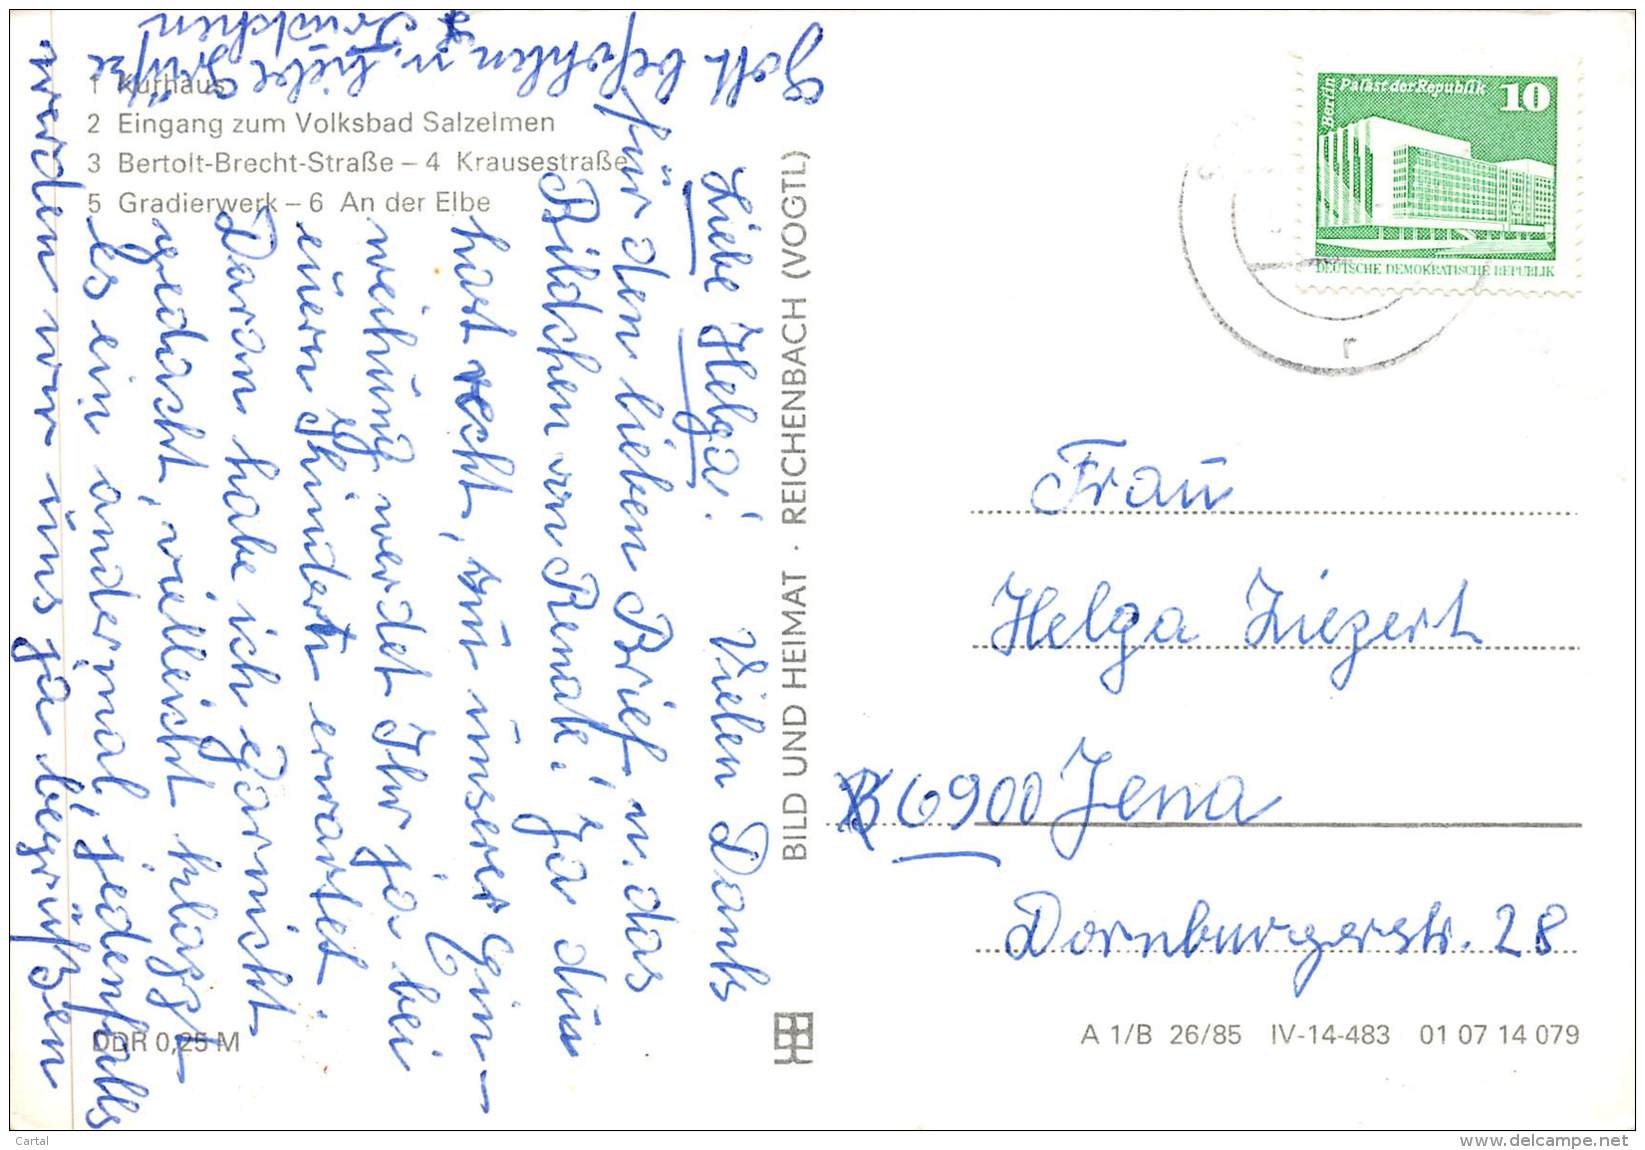 1 Kurhaus
2 Eingang zum Volksbad Salzelmen
3 Bertolt-Brecht-Straße – 4 Krausestraße
5 Gradierwerk – 6 An der Elbe
Liebe Helga! Vielen Dank
für den lieben Brief u. das
Bildchen von Renate! Ja du
hast recht, zu unserer Ein-
weihung werdet Ihr ja bei
euern Kindern erwartet.
Daran habe ich garnicht
gedacht, vielleicht klappt
es ein andermal, jedenfalls
werden wir uns ja begrüßen
Gott befohlen u. liebe Grüße
Trudchen
BILD UND HEIMAT · REICHENBACH (VOGTL)
DDR 0,25 M
Berlin
Palast der Republik
10
DEUTSCHE DEMOKRATISCHE REPUBLIK
Frau
Helga Ziegert
6900 Jena
Dornburgerstr. 28
A 1/B 26/85 IV-14-483 01 07 14 079
Cartal
www.delcampe.net